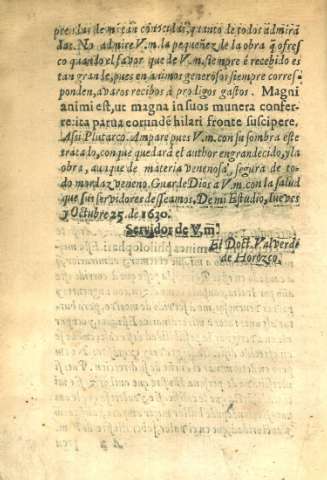 prendas de mi tan conocidas, quanto de todos admira
das. No admire V.m. la pequeñez de la obra q̃ ofres
co quando el fauor que de V.m. siempre è recebido es
tan grande, pues en animos generosos siempre corres
ponden, a varos recibos à prodigos gastos. Magni
animi est, ut magna in suos munera confer-
re: ita parua eorundẽ hilari fronte suscipere.
Assi Plutarco. Ampare pues V.m. con su sombra este
tratado, con que quedarà el author engrandecido, y la
obra, aunque de materia venenosa, segura de to-
do mordaz veneno. Guarde Dios a V.m. con la salud
que sus servidores desseamos. De mi Estudio, Iueves
y Octubre 25. de 1630.
Servidor de V.m.
El Doct. Valverde
de Horozco.